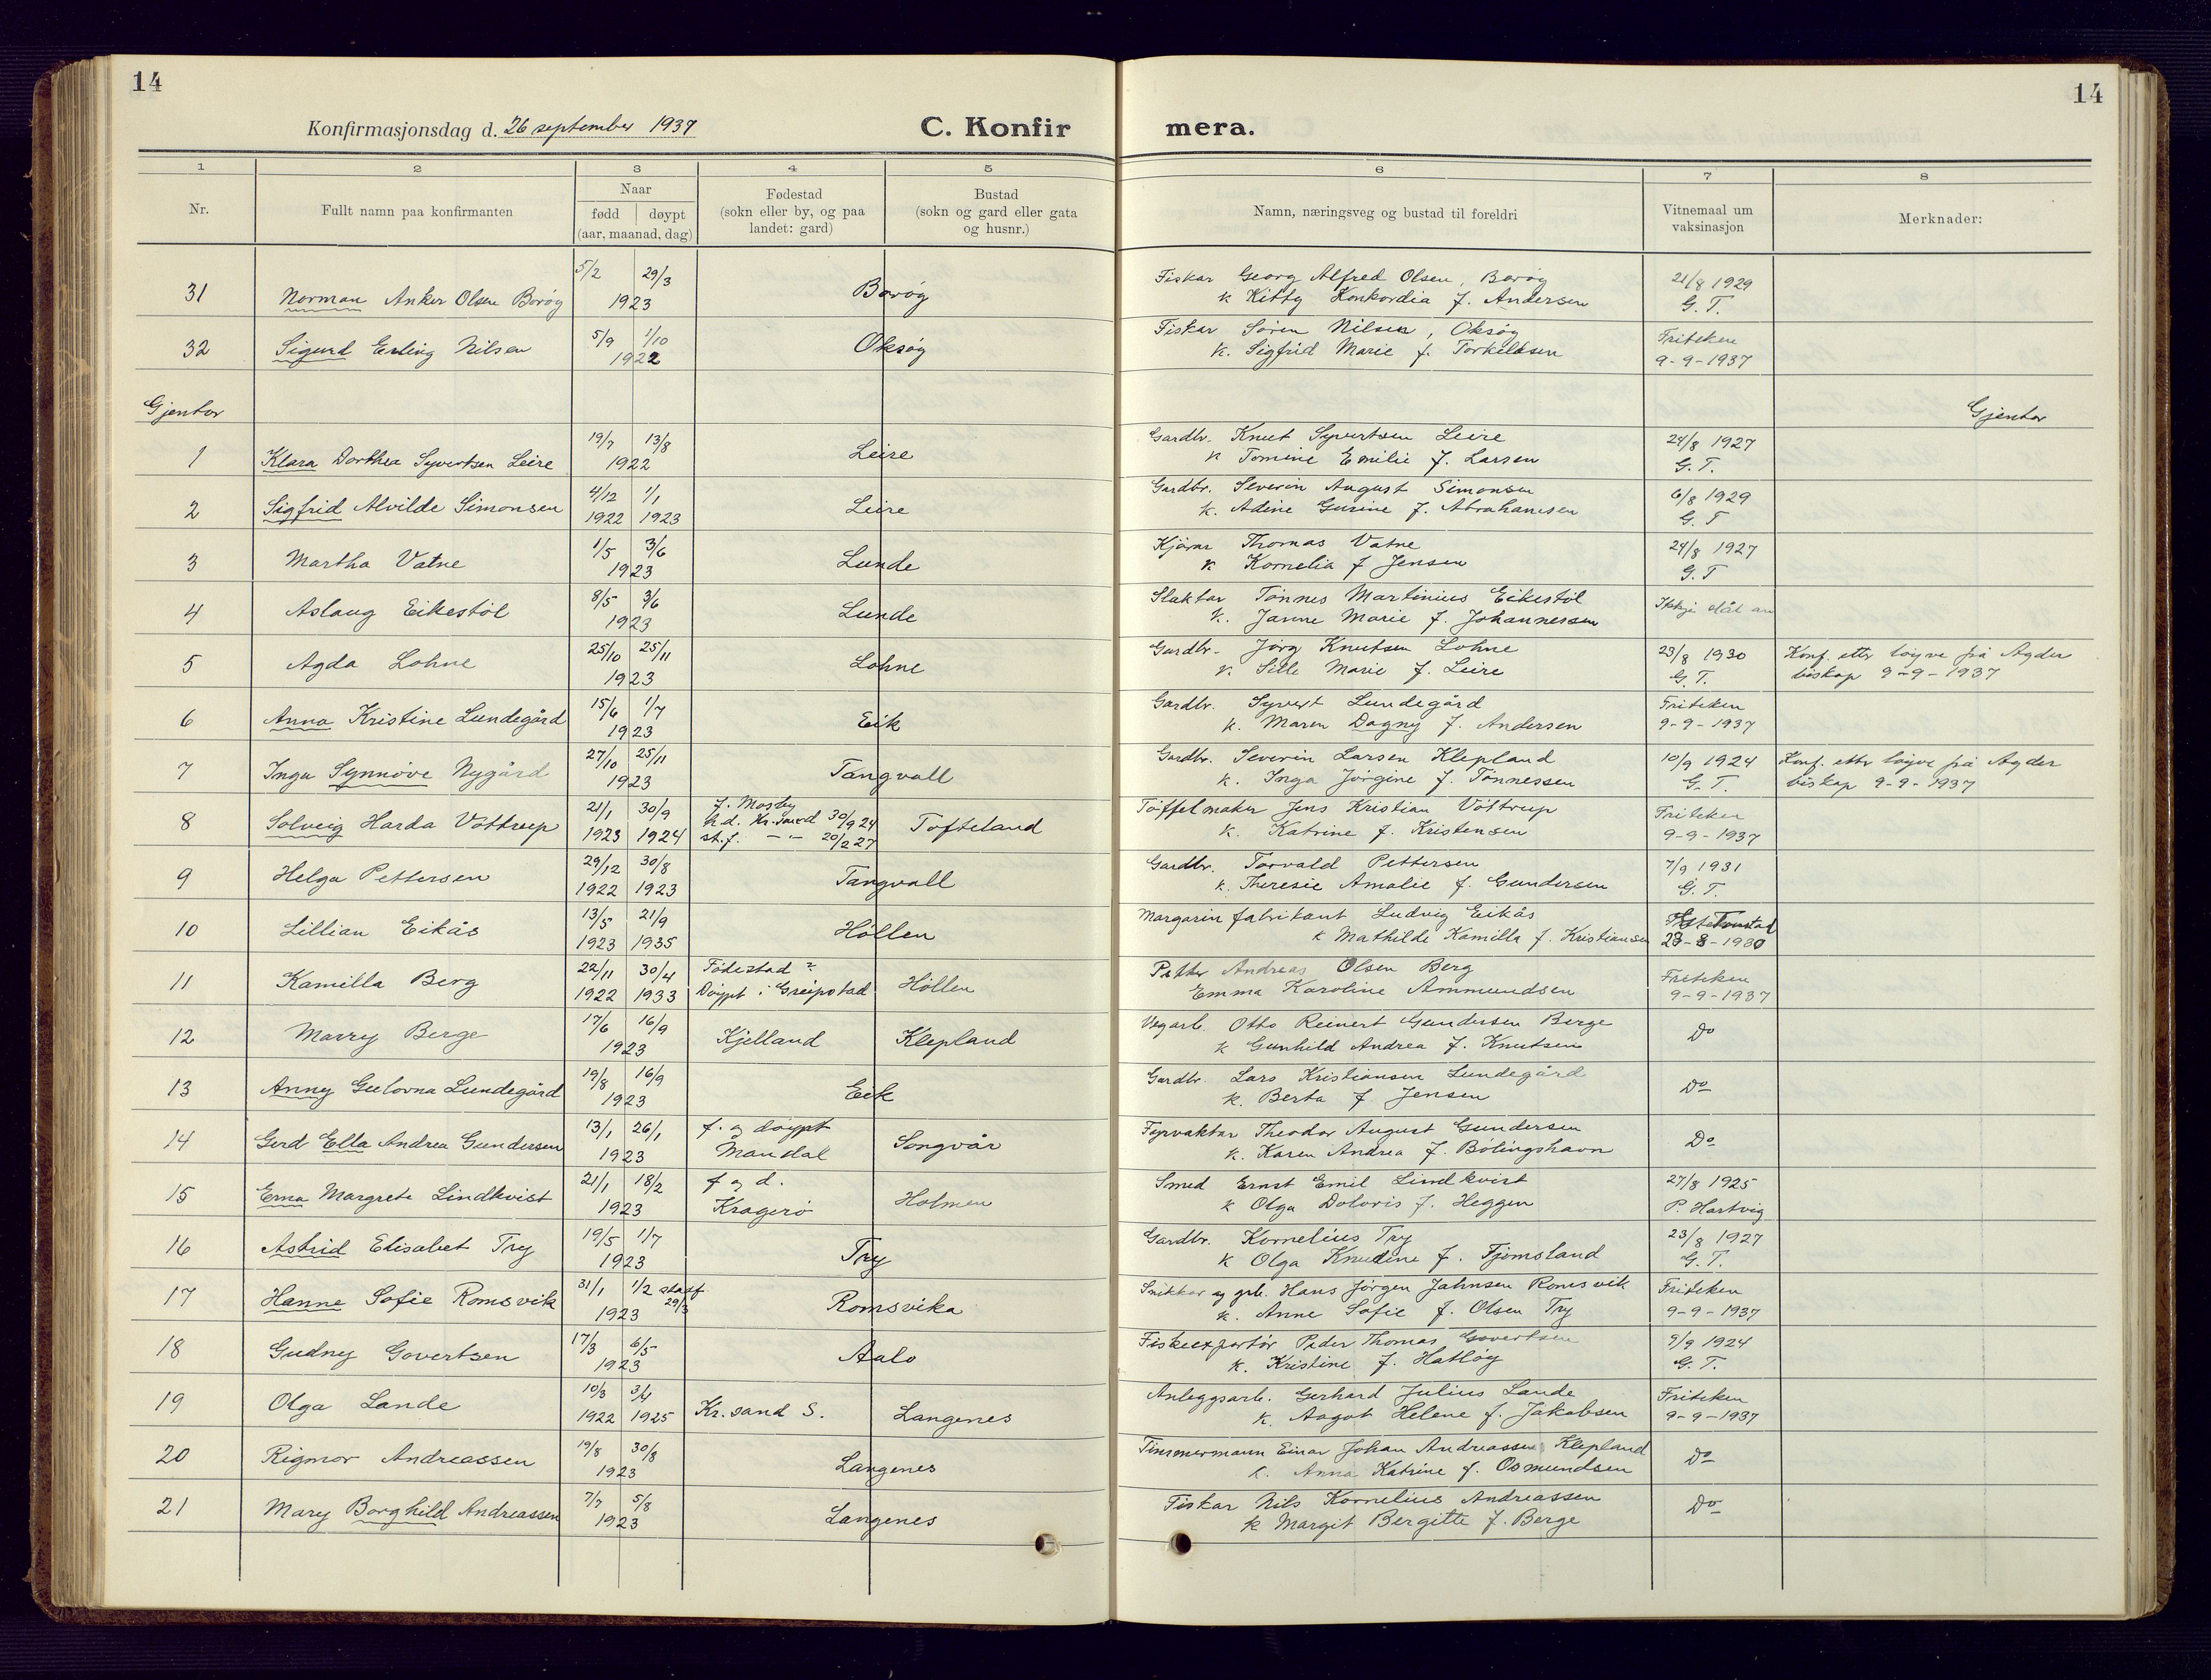 14
14
Konfirmasjonsdag d. 26 september 1937
C. Konfir
mera.
1 2 3 4 5 6 7 8
Nr.
Fullt namn paa konfirmanten
Naar
fødd | døypt
(aar, maanad, dag)
Fødestad
(sokn eller by, og paa
landet: gard)
Bustad
(sokn og gard eller gata
og husnr.)
Namn, næringsveg og bustad til foreldri
Vitnemaal um
vaksinasjon
Merknader:
31 Norman Anker Olsen Borøg 5/2 29/3 1923 Borøg Fiskar Georg Alfred Olsen, Borøg 21/8 1929
k Kitty Konkordia f. Andersen G. T.
32 Sigurd Erling Nilsen 5/9 1/10 1922 Oksøg Fiskar Søren Nilsen, Oksøg Friteken
k. Sigfrid Marie f. Torkildsen 9-9-1937
Gjentor Gjentor
1 Klara Dorthea Syvertsen Leire 19/7 13/8 1922 Leire Gardbr. Knut Syvertsen Leire 24/8 1927
k Tomine Emilie f. Larsen G. T.
2 Sigfrid Alvilde Simonsen 4/12 1/1 1922 1923 Leire Gardbr. Severin August Simonsen 6/8 1929
k. Adine Gurine f. Abrahamsen G. T
3 Martha Vatne 1/5 3/6 1923 Lunde Kjørar Thomas Vatne 24/8 1927
k Kornelia f Jensen G. T
4 Aslaug Eikestøl 8/5 3/6 1923 Lunde Slaktar Tønnes Martinius Eikestøl Ikkje slåt an
k. Janne Marie f. Johannessen
5 Agda Lohne 25/10 25/11 1923 Lohne Gardbr. Jørg Knutsen Lohne 23/8 1930 Konf. etter løyve frå Agder
k. Sille Marie f. Leire G. T. biskop 9-9-1937
6 Anna Kristine Lundegård 15/6 1/7 1923 Eik Gardbr. Syvert Lundegård Friteken
k. Maren Dagny f. Andersen 9-9-1937
7 Inga Synnøve Nygård 27/10 25/11 1923 Tangvall Gardbr. Severin Larsen Klepland 10/9 1924 Konf. etter løyve frå Agder
k. Inga Jørgine f. Tønnessen G. T. biskop 9-9-1937
8 Solveig Harda Vottrup 21/1 30/9 1923 1924 f. Mosby
h.d. Kr.sand 30/9 24
st.f. - " - 20/2 27 Tofteland Tøffelmaker Jens Kristian Vottrup Friteken
k. Katrine f. Kristensen 9-9-1937
9 Helga Pettersen 29/12 30/8 1922 1923 Tangvall Gardbr. Torvald Pettersen 7/9 1931
k. Theresie Amalie f. Gundersen G. T.
10 Lillian Eikås 13/5 21/9 1923 1935 Høllen Margarinfabrikant Ludvig Eikås
k Mathilde Kamilla f. Kristiansen 28-8-1930
11 Kamilla Berg 22/11 30/4 1922 1933 Fødestad ?
Døypt i Greipstad Høllen Petter Andreas Olsen Berg Friteken
Emma Karoline Ammundsen 9-9-1937
12 Marry Berge 17/6 16/9 1923 Kjelland Klepland Vegarb. Otto Reinert Gundersen Berge Do
k Gunhild Andrea f. Knutsen
13 Anny Gulovna Lundegård 19/8 16/9 1923 Eik Gardbr. Lars Kristiansen Lundegård Do
k. Berta f Jensen
14 Gerd Ella Andrea Gundersen 13/1 26/1 1923 f. og døypt
Mandal Songvår Fyrvaktar Theodor August Gundersen Do
k. Karen Andrea f. Bølingshavn
15 Erna Margrete Lindkvist 21/1 18/2 1923 f og d.
Kragerø Holmen Smed Ernst Emil Lindkvist 27/8 1925
k Olga Doloris f. Heggen P. Hartvig
16 Astrid Elisabet Try 19/5 1/7 1923 Try Gardbr. Kornelius Try 23/8 1927
k Olga Knudine f. Fjomsland G. T.
17 Hanne Sofie Romsvik 31/1 1/2 stasf 29/3 1923 Romsvika Snikkar og grb. Hans Jørgen Jahnsen Romsvik Friteken
k. Anne Sofie f. Olsen Try 9-9-1937
18 Gudny Govertsen 17/3 6/5 1923 Aalo Fiskeexportør Peder Thomas Govertsen 9/9 1924
k. Kristine f. Hatløy G. T.
19 Olga Lande 10/3 3/4 1922 1925 Kr.sand S. Langenes Anleggsarb. Gerhard Julius Lande Friteken
k. Aagot Helene f. Jakobsen 9-9-1937
20 Rigmor Andreassen 19/8 30/8 1923 Langenes Timmermann Einar Johan Andreassen Klepland Do
k. Anna Katrine f. Osmundsen
21 Mary Borghild Andreassen 7/7 5/8 1923 Langenes Fiskar Nils Kornelius Andreassen Do
k Margit Bergitte f. Berge